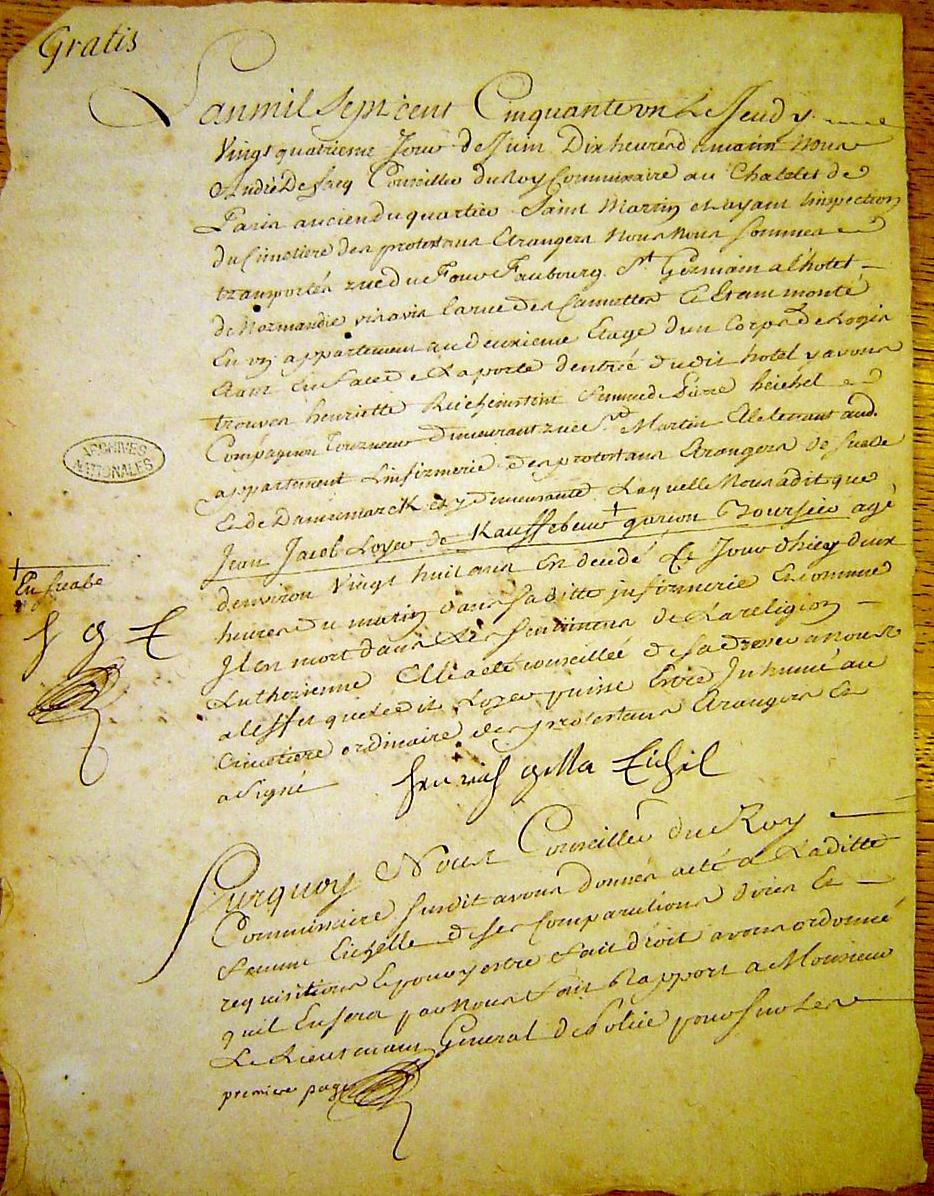 Gratis
Lanmil Sept cent Cinquante un Le Jeudy
Vingt quatrieme Jour de Juin Dix heures du matin Nous
André Defacq Conseiller du Roy Commissaire au Chatelet de
Paris ancien du quartier Saint Martin et ayant linspection
du Cimetiere des protestans Etrangers Nous Nous sommes
transportés rue du Four Faubourg St Germain a lhotel
de Normandie vis avis la rue des Cannettes Et Etant monté
En un appartement au deuxieme Etage dun Corps de Logis
ayant En face de La porte dentrée dudit hotel y avons
trouvée henriette femme de Pierre heichel
Compagnon Tourneur demeurant rue St Martin Elle audt
appartement Linfirmerie des protestans Etrangers de Suede
Et de Dannemarck et y demeurante Laquelle Nous a dit que
Jean Jacob Loyer de Kauffebeur + garçon Boursier agé
denviron Vingt huit ans Est decedé Le Jour dhier deux
heures du matin dans Laditte infirmerie Et comme
Il est mort dans Les Sentimens de La religion
Lutherienne Elle a eté conseillée de sadresser a nous
a leffet que Ledit Loyer puisse Estre Inhumé au
Cimetiere ordinaire des protestans Etrangers Et
a Signé
Eichel
ARCHIVES
NATIONALES
+
En Suabe
Surquoy Nous Conseiller du Roy
Commissaire Susdit avons donnés acté a Laditte
femme Eichelle de ses Comparutions dires Et
requisitions Et pour y estre fait droit avons ordonné
quil En sera par Nous fait Rapport a Monsieur
Le Lieutenant General de Police pour sur Les
premiere page